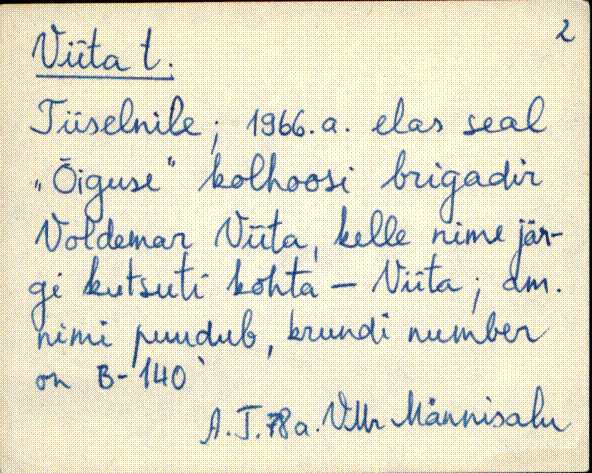 2
Viita t.
Tiiselnile; 1966.a. elas seal
„Õiguse" kolhoosi brigadir
Voldemar Viita, kelle nime jär-
gi kutsuti kohta – Viita; am.
nimi puudub, krundi number
on B-140
A.T. 78 a. VMr Männisalu